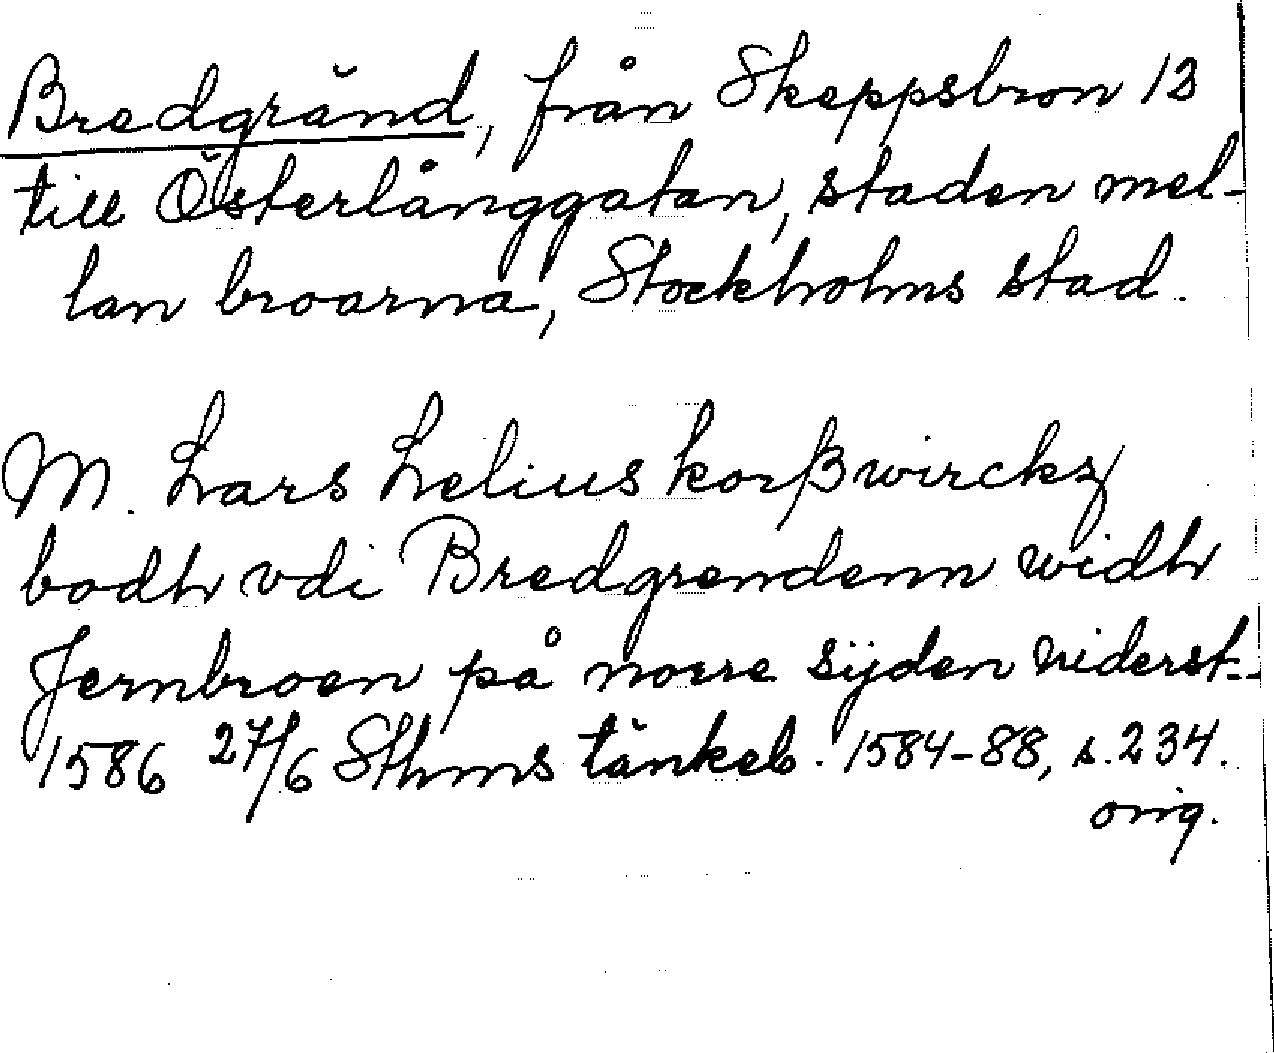 Bredgränd, från Skeppsbron 12
till Österlånggatan, staden mel-
lan broarna, Stockholms stad.
M. Lars Lelius korßwirckz
bodh vdi Bredgrendenn widh
Jernbroen på norre sÿden niderst--
1586 27/6 Sthms tänkeb. 1584-88, s. 234.
orig.